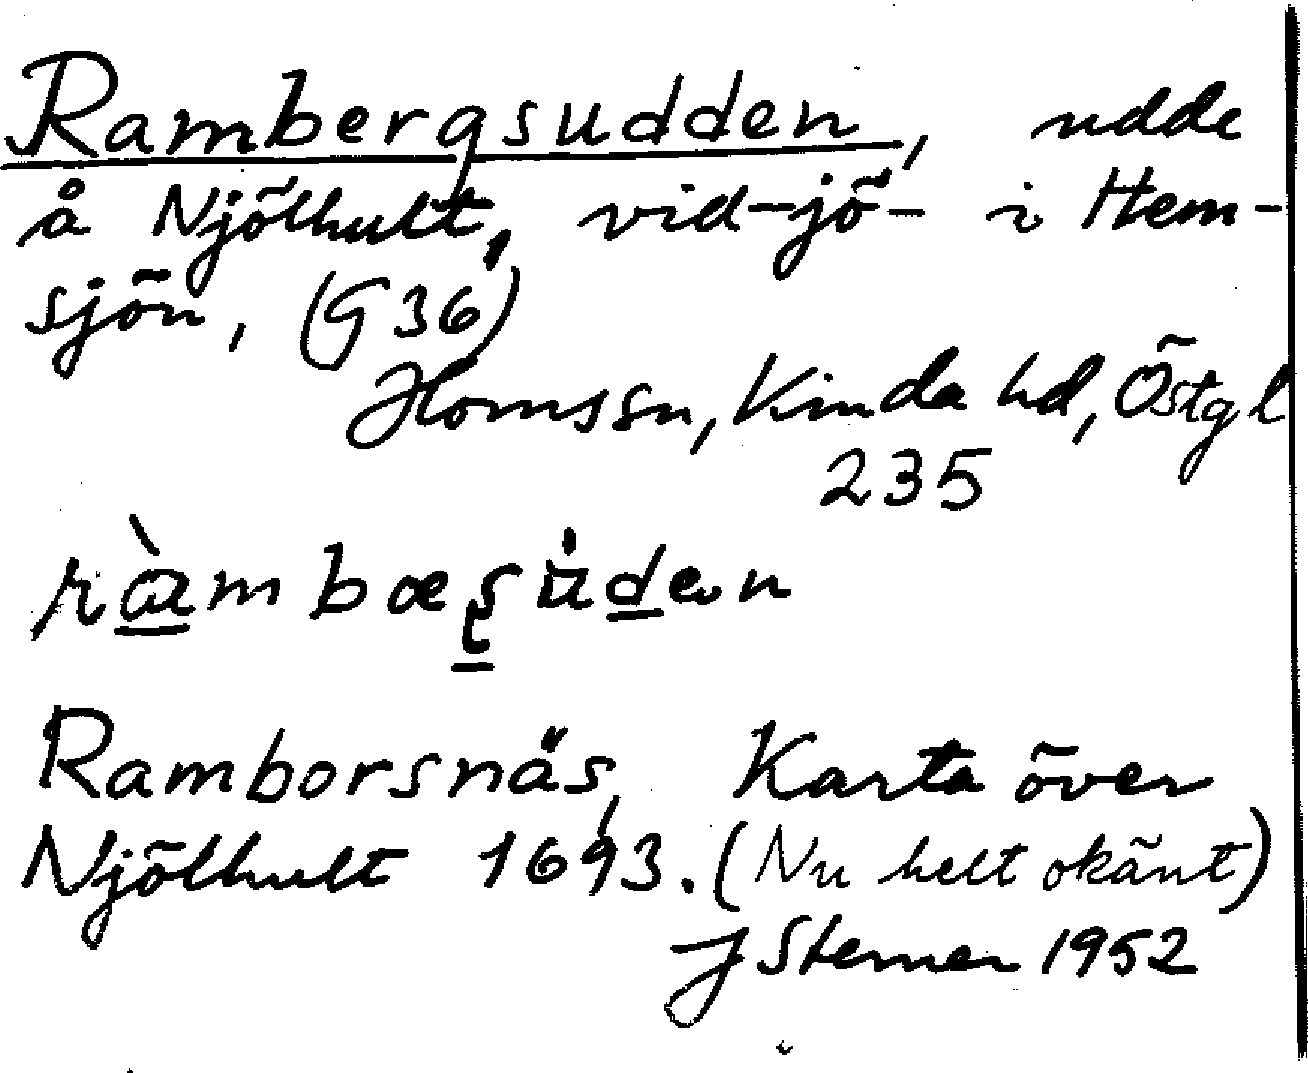 Rambergsudden, udde
å Njölhult, vid-jö- i Hem-
sjön, (G 36)
Hornssn, Kinda hd, Östgl
235
ràmbæʂu̇den
Ramborsnäs, Karta över
Njölhult 1693. (Nu helt okänt)
J Sterner 1952